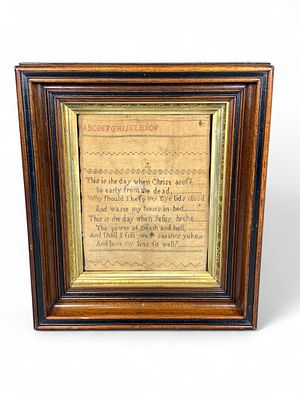 ABCDEFGHIJKLMNOP
This is the day when Christ arose
So early from the dead,
Why Should I keep my Eye lids closd
And waste my hours in bed
This is the day when Jesus broke
The power of Death and hell,
And shall I still wear satans yoke
And love my Sins so well